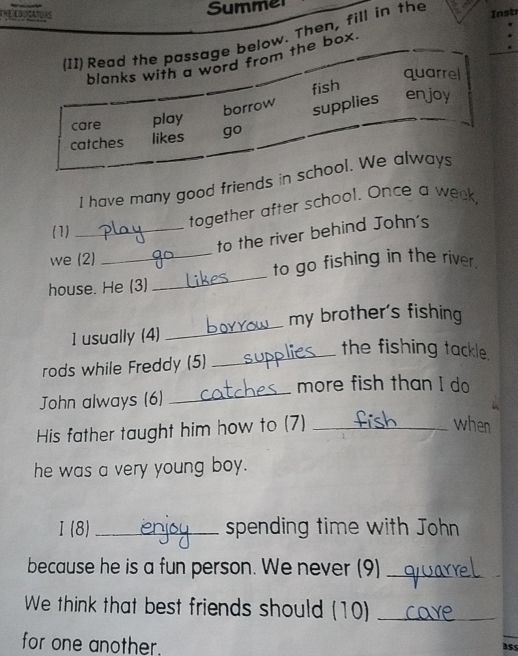 Summer
Inst
(II) Read the passage below. Then, fill in the
blanks with a word from the box.
care play borrow fish quarrel
catches likes go supplies enjoy
I have many good friends in school. We always
(1) play together after school. Once a week,
we (2) go to the river behind John's
house. He (3) likes to go fishing in the river.
I usually (4) borrow my brother's fishing
rods while Freddy (5) supplies the fishing tackle.
John always (6) catches more fish than I do
His father taught him how to (7) fish when
he was a very young boy.
I (8) enjoy spending time with John
because he is a fun person. We never (9) quarrel.
We think that best friends should (10) care
for one another.
ass